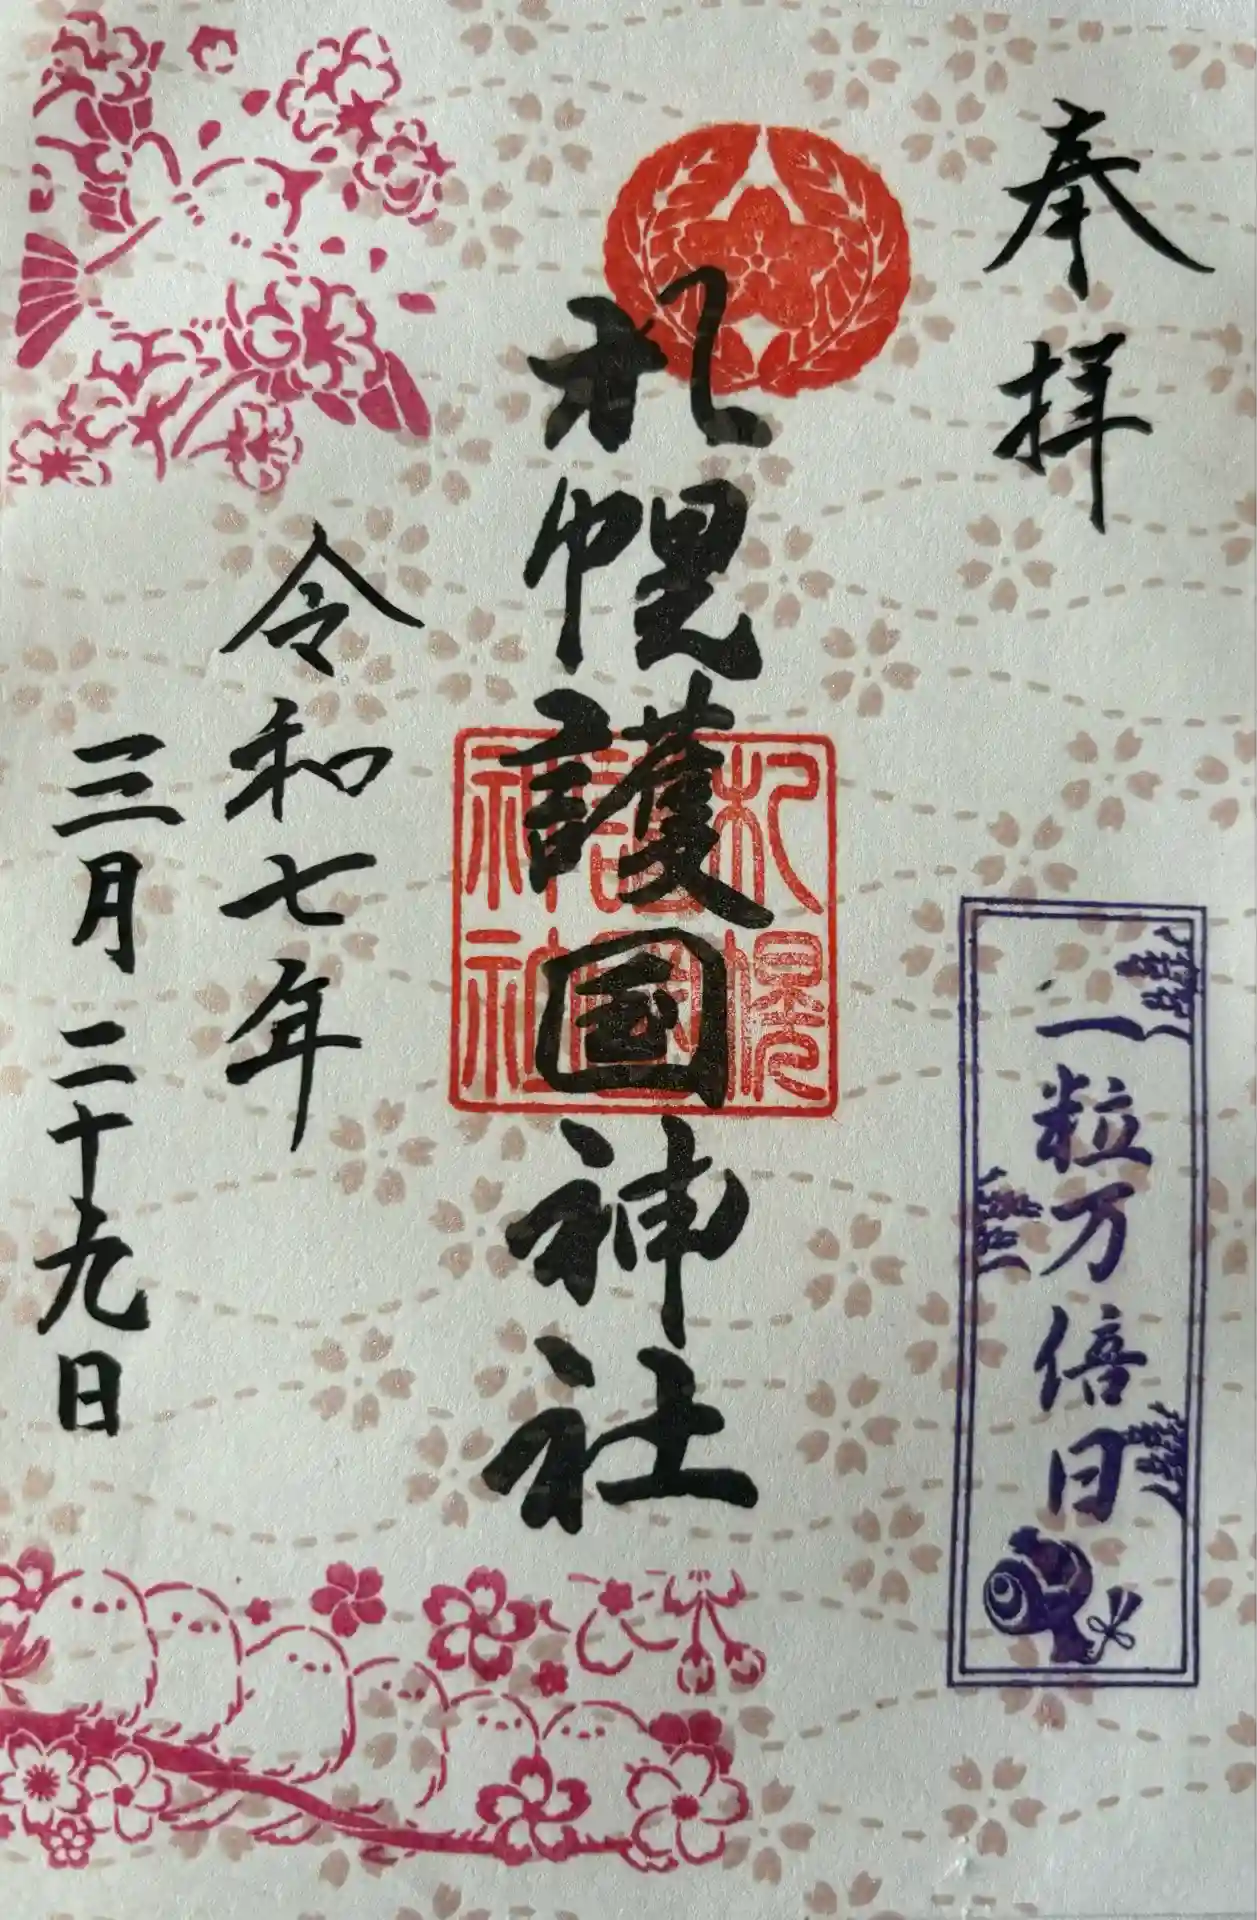 奉拝
一粒万倍日
札幌護国神社
札幌護國神社
令和七年
三月二十九日